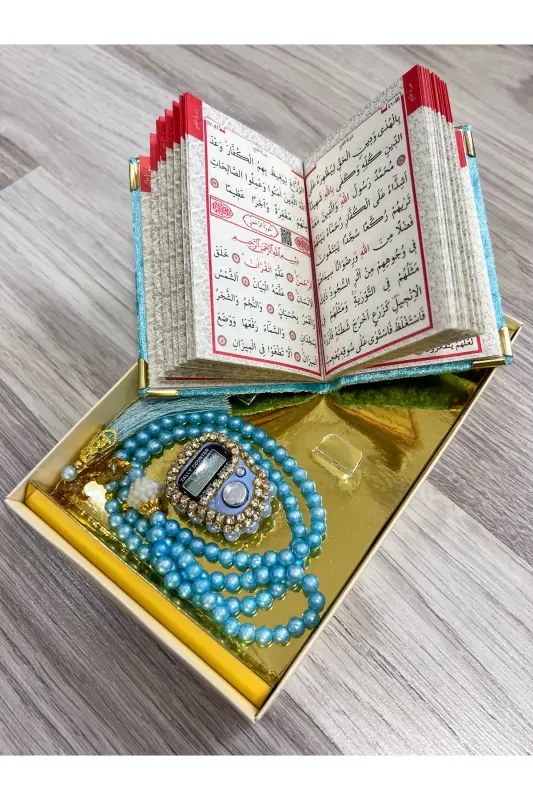 بِالْهُدٰى وَدِينِ الْحَقِّ لِيُظْهِرَهُ عَلَى
الدِّينِ كُلِّهِ وَكَفٰى بِاللهِ
مُحَمَّدٌ رَسُولُ اللهِ وَالَّذِينَ
اَشِدَّٓاءُ عَلَى الْكُفَّارِ رُحَمَٓاءُ
تَرٰيهُمْ رُكَّعًا سُجَّدًا يَبْتَغُونَ
فَضْلًا مِنَ اللهِ وَرِضْوَانًا
فِي وُجُوهِهِمْ مِنْ اَثَرِ السُّجُودِ
مَثَلُهُمْ فِي التَّوْرٰيةِ وَمَثَلُهُمْ
الْاِنْجِيلِ كَزَرْعٍ اَخْرَجَ شَطْـَٔهُ
فَاسْتَغْلَظَ فَاسْتَوٰى عَلٰى سُوقِهِ يُعْجِبُ
الزُّرَّاعَ لِيَغِيظَ بِهِمُ الْكُفَّارَ وَعَدَ
اللهُ الَّذِينَ اٰمَنُوا وَعَمِلُوا الصَّالِحَاتِ
مِنْهُمْ مَغْفِرَةً وَاَجْرًا عَظِيمًا
بِسْمِ اللهِ الرَّحْمٰنِ الرَّحِيمِ
اَلرَّحْمٰنُ عَلَّمَ الْقُرْاٰنَ خَلَقَ
الْاِنْسَانَ عَلَّمَهُ الْبَيَانَ اَلشَّمْسُ
وَالْقَمَرُ بِحُسْبَانٍ وَالنَّجْمُ وَالشَّجَرُ
يَسْجُدَانِ وَالسَّمَٓاءَ رَفَعَهَا وَوَضَعَ
الْمِيزَانَ اَلَّا تَطْغَوْا فِي الْمِيزَانِ
TALLY COUNTER